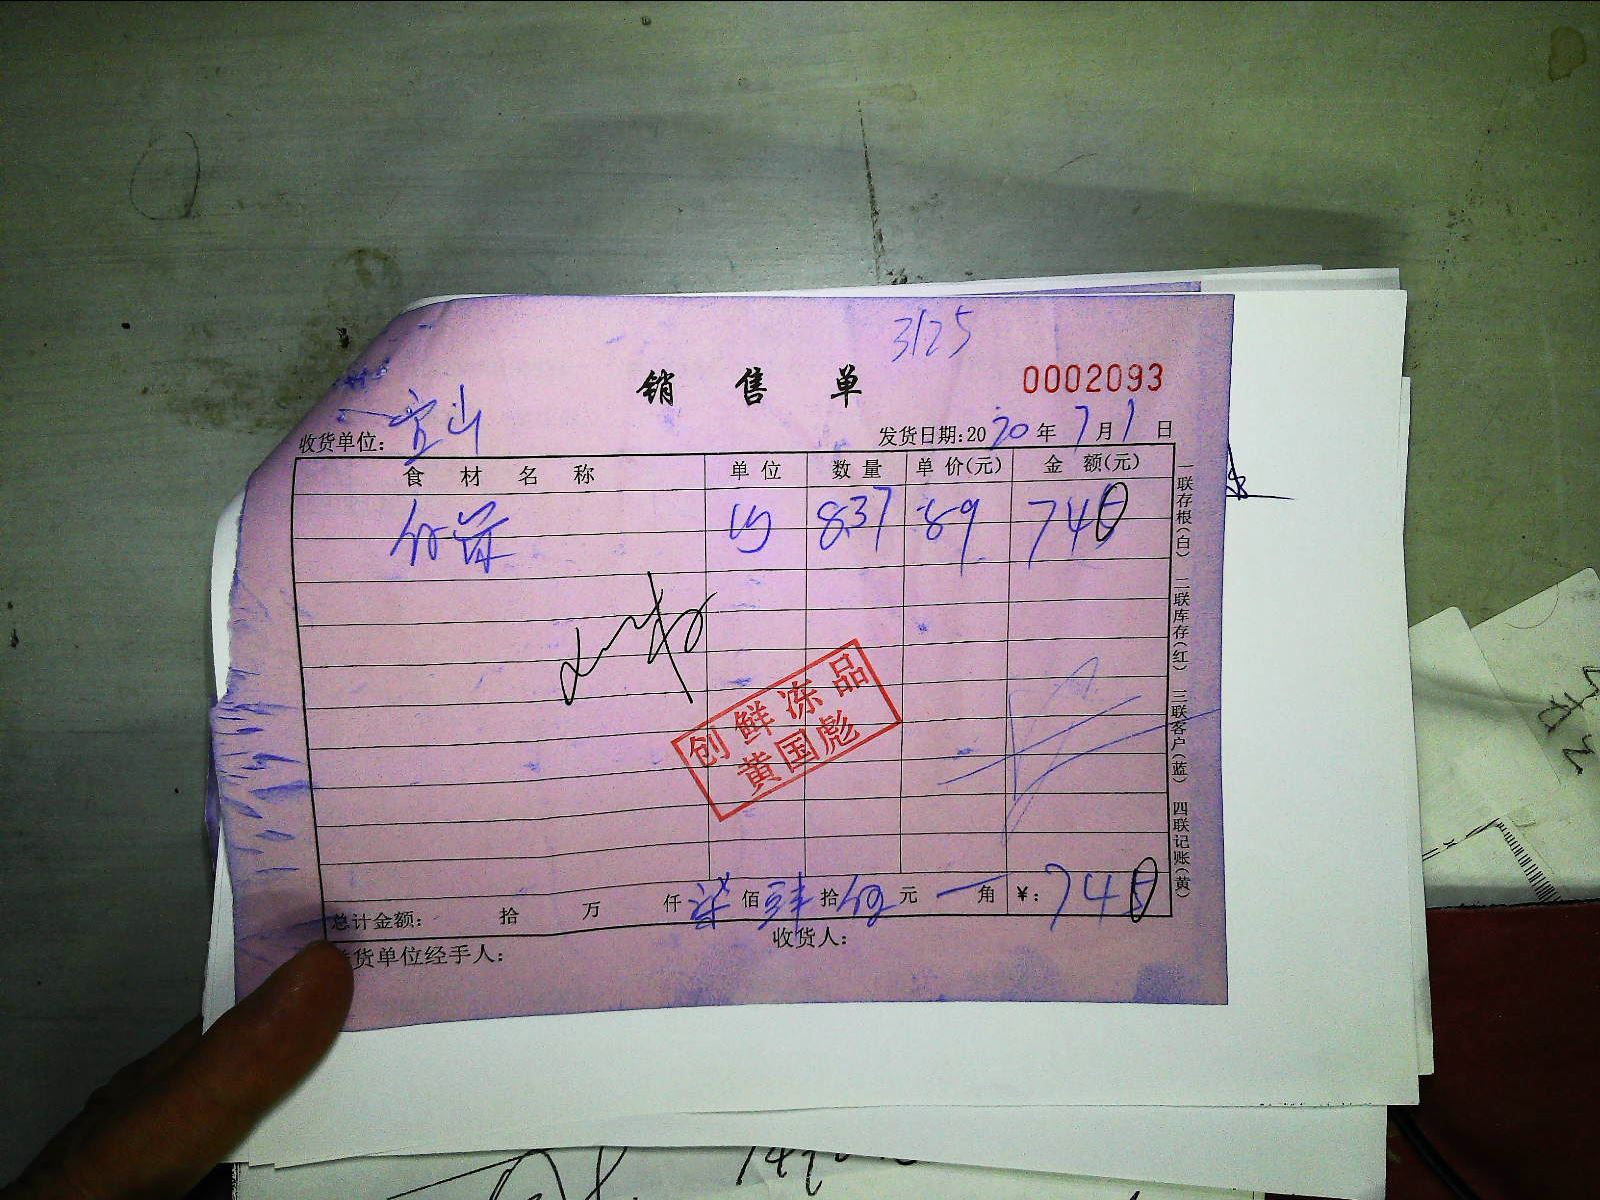 3125
销售单
0002093
收货单位: 宜山
发货日期:2020年7月1日
食材名称 单位 数量 单价(元) 金额(元)
837 89 740
创鲜冻品
黄国彪
总计金额: 拾 万 仟 柒佰 肆拾 元 一角 ¥: 740
货单位经手人:
收货人:
一联存根(白) 二联库存(红) 三联客户(蓝) 四联记账(黄)